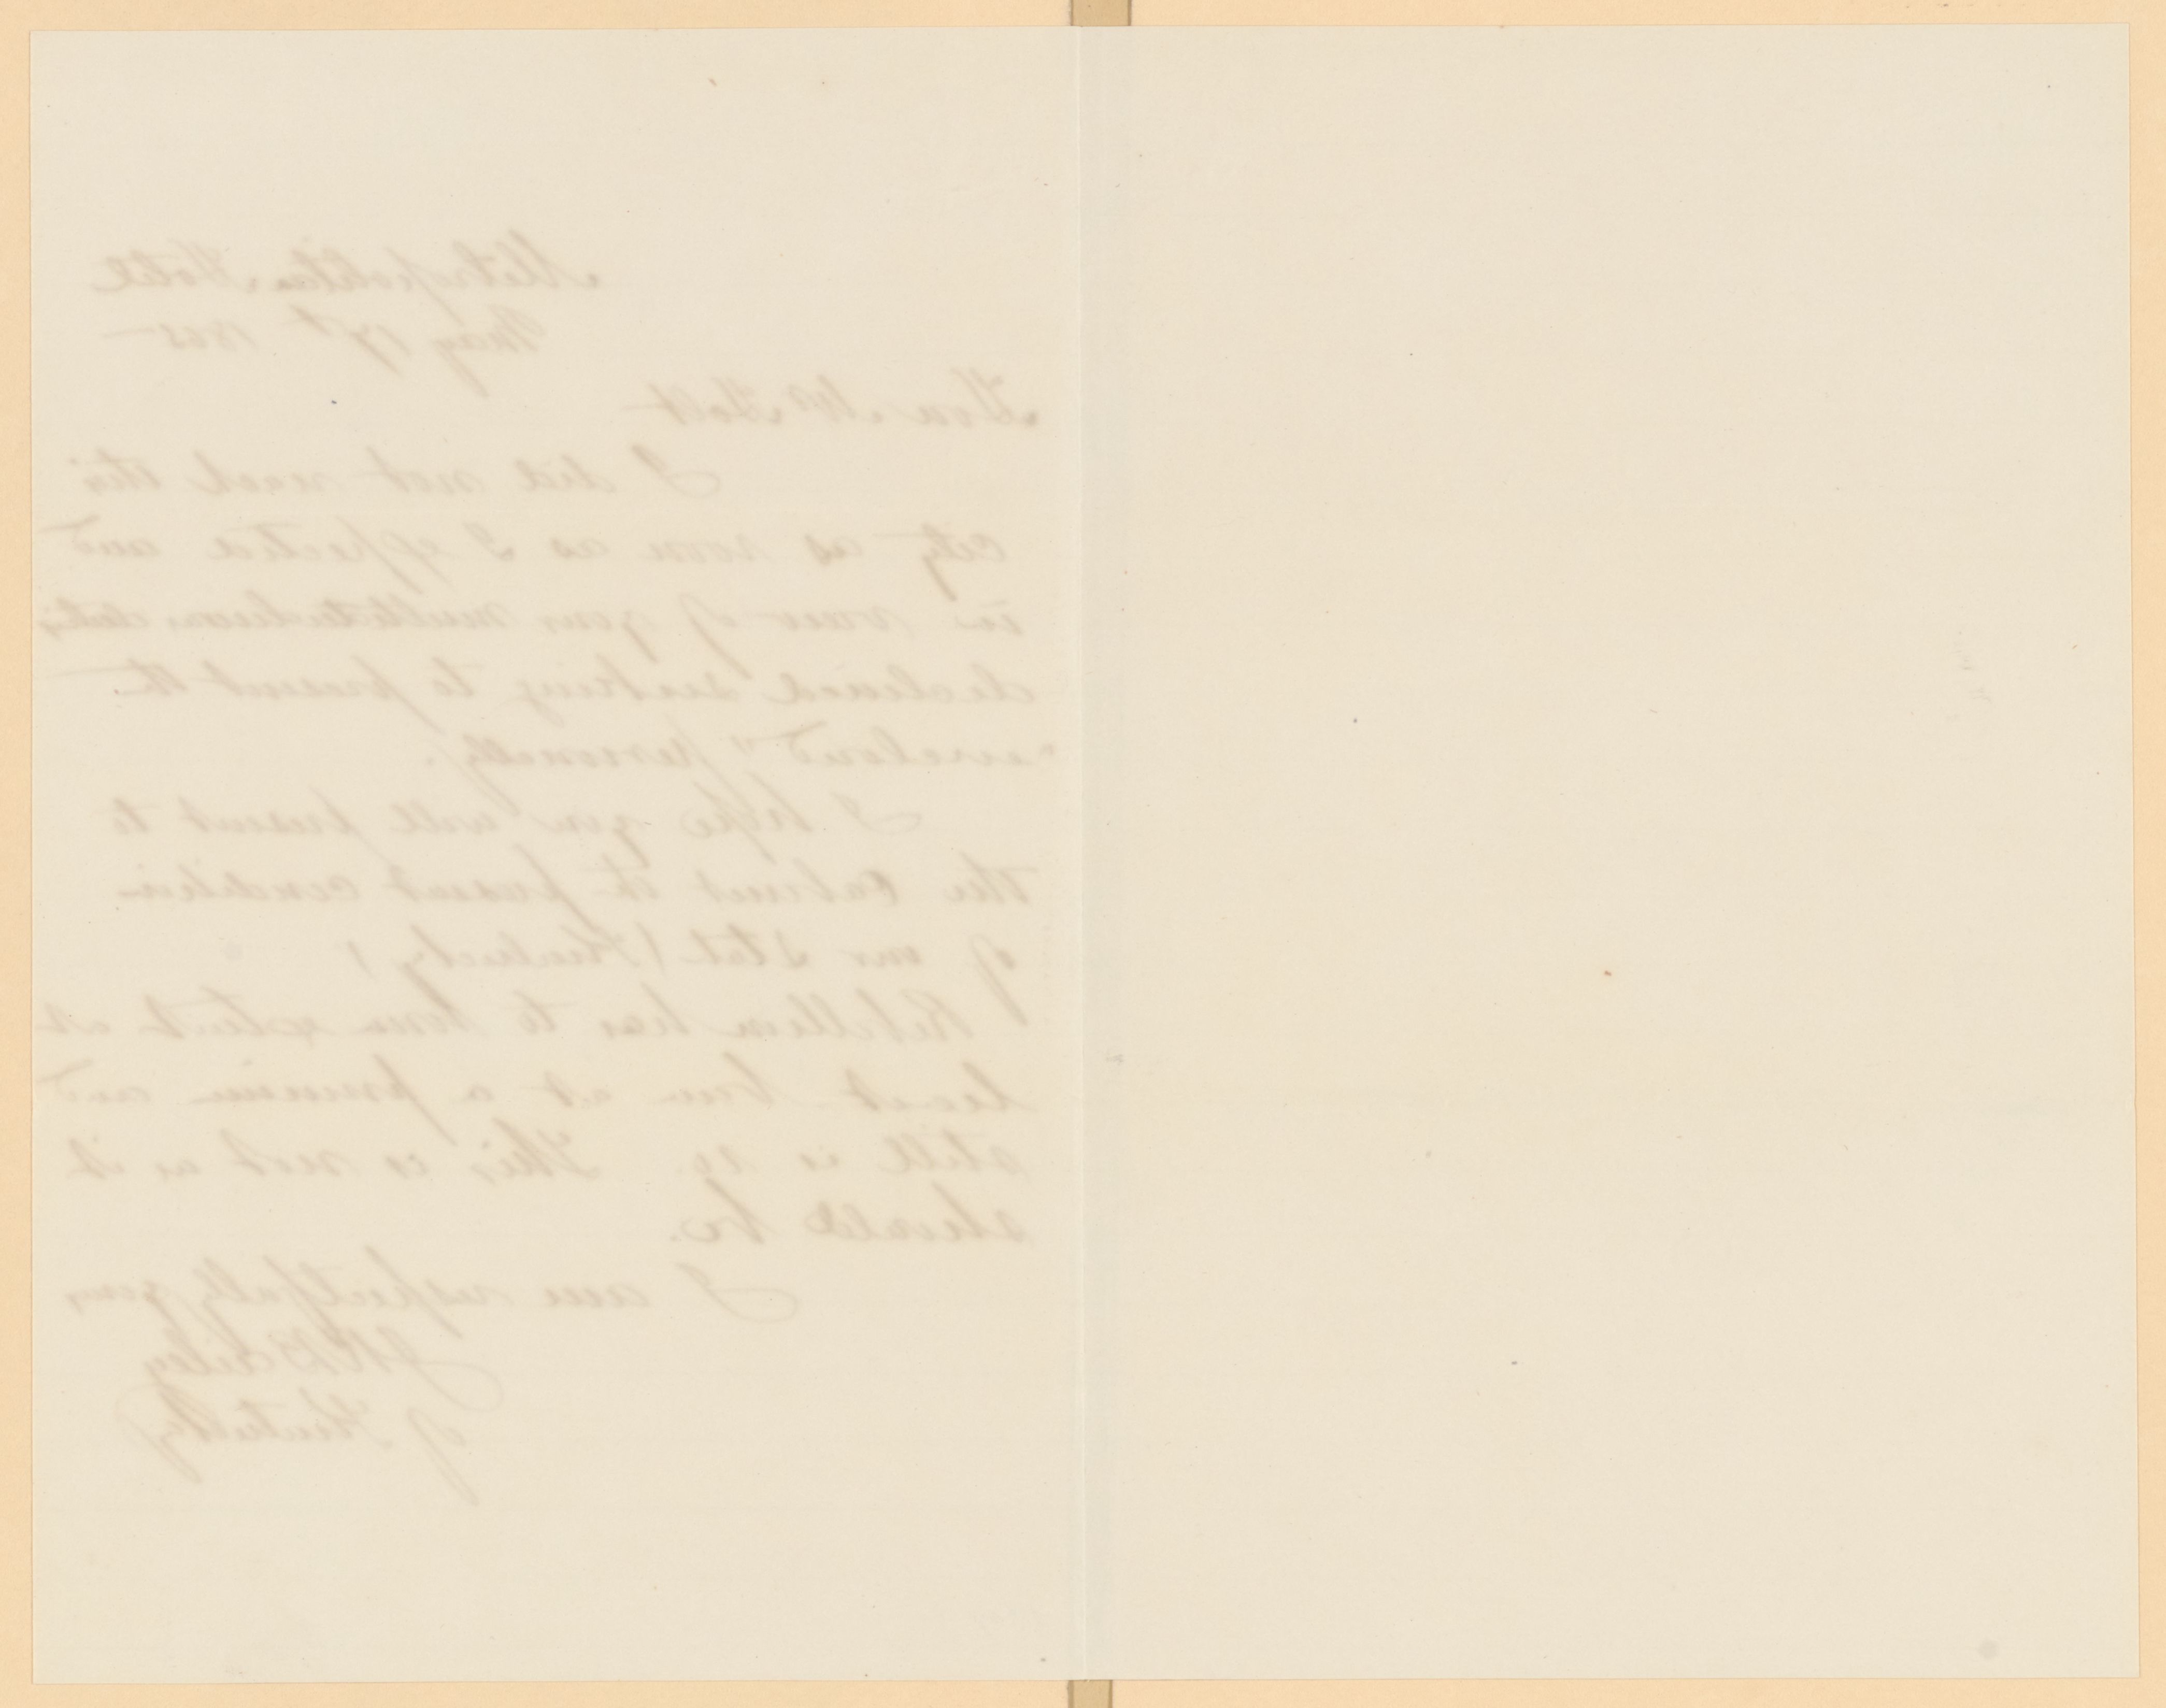 Metropolitan Hotel
May 17th 1865
Hon Mr Holt
I did not reach this
city as soon as I expected and
in view of your multitudinous duties
declined seeking to present the
enclosed personally.
I hope you will present to
the Cabinet the present condition
of our State (Kentucky)
Rebellion has to some extent at
least been at a premium and
still is so. This is not as it
should be.
I am respectfully yours
of Kentucky